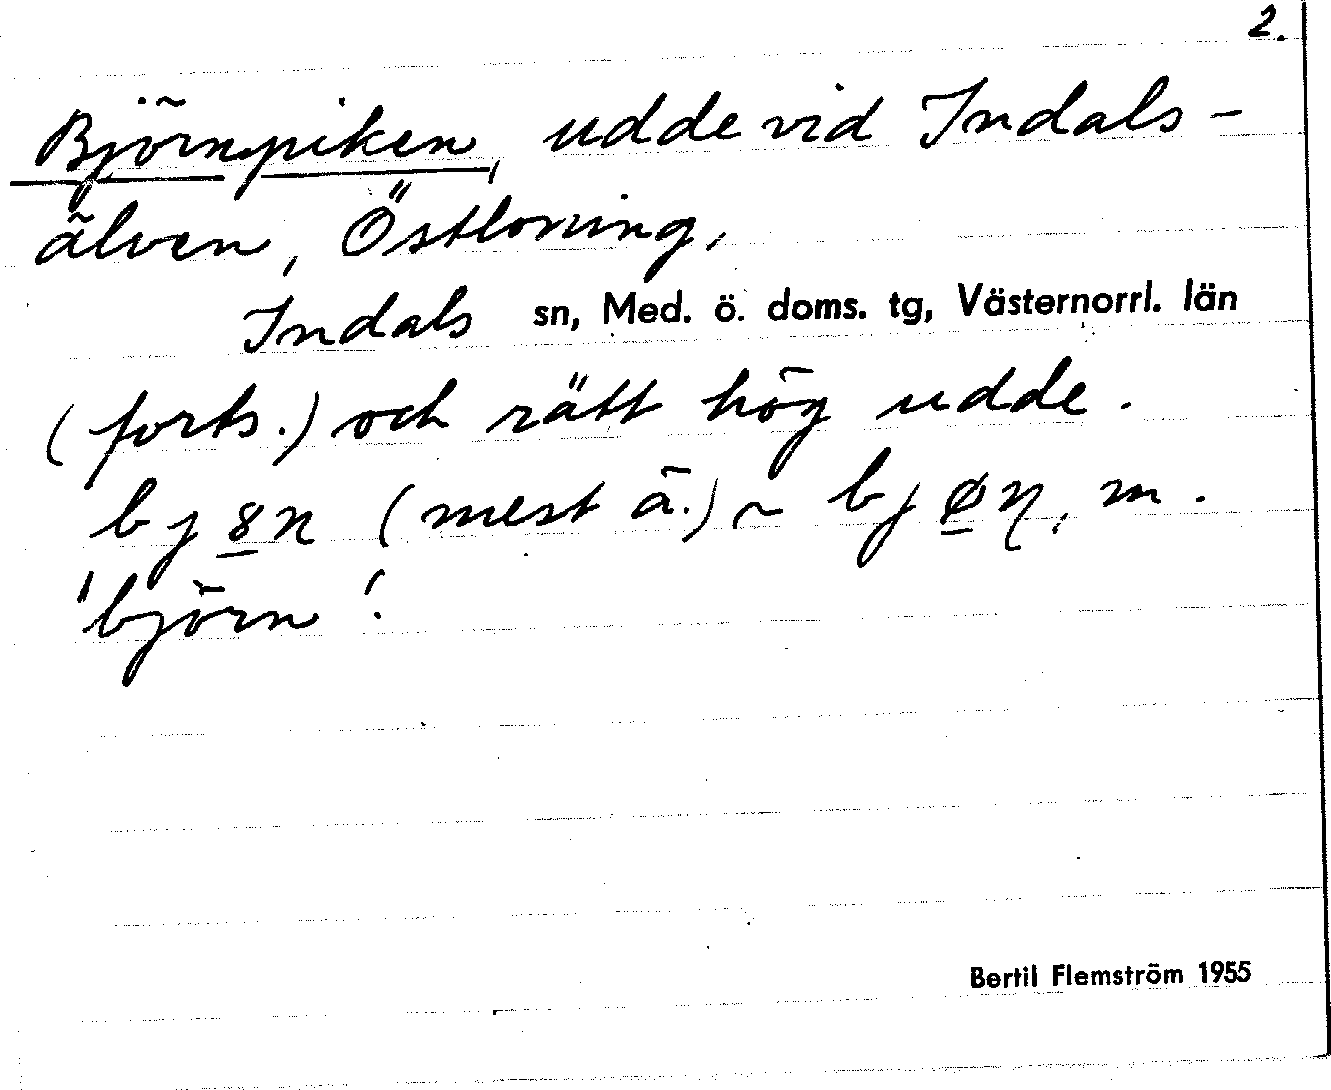 2.
Björnpiken, udde vid Indals-
älven, Östloning,
Indals sn, Med. ö. doms. tg, Västernorrl. län
(forts.) och rätt hög udde.
bj8n (mest ä.) ~ bjøn, m.
'björn'.
Bertil Flemström 1955